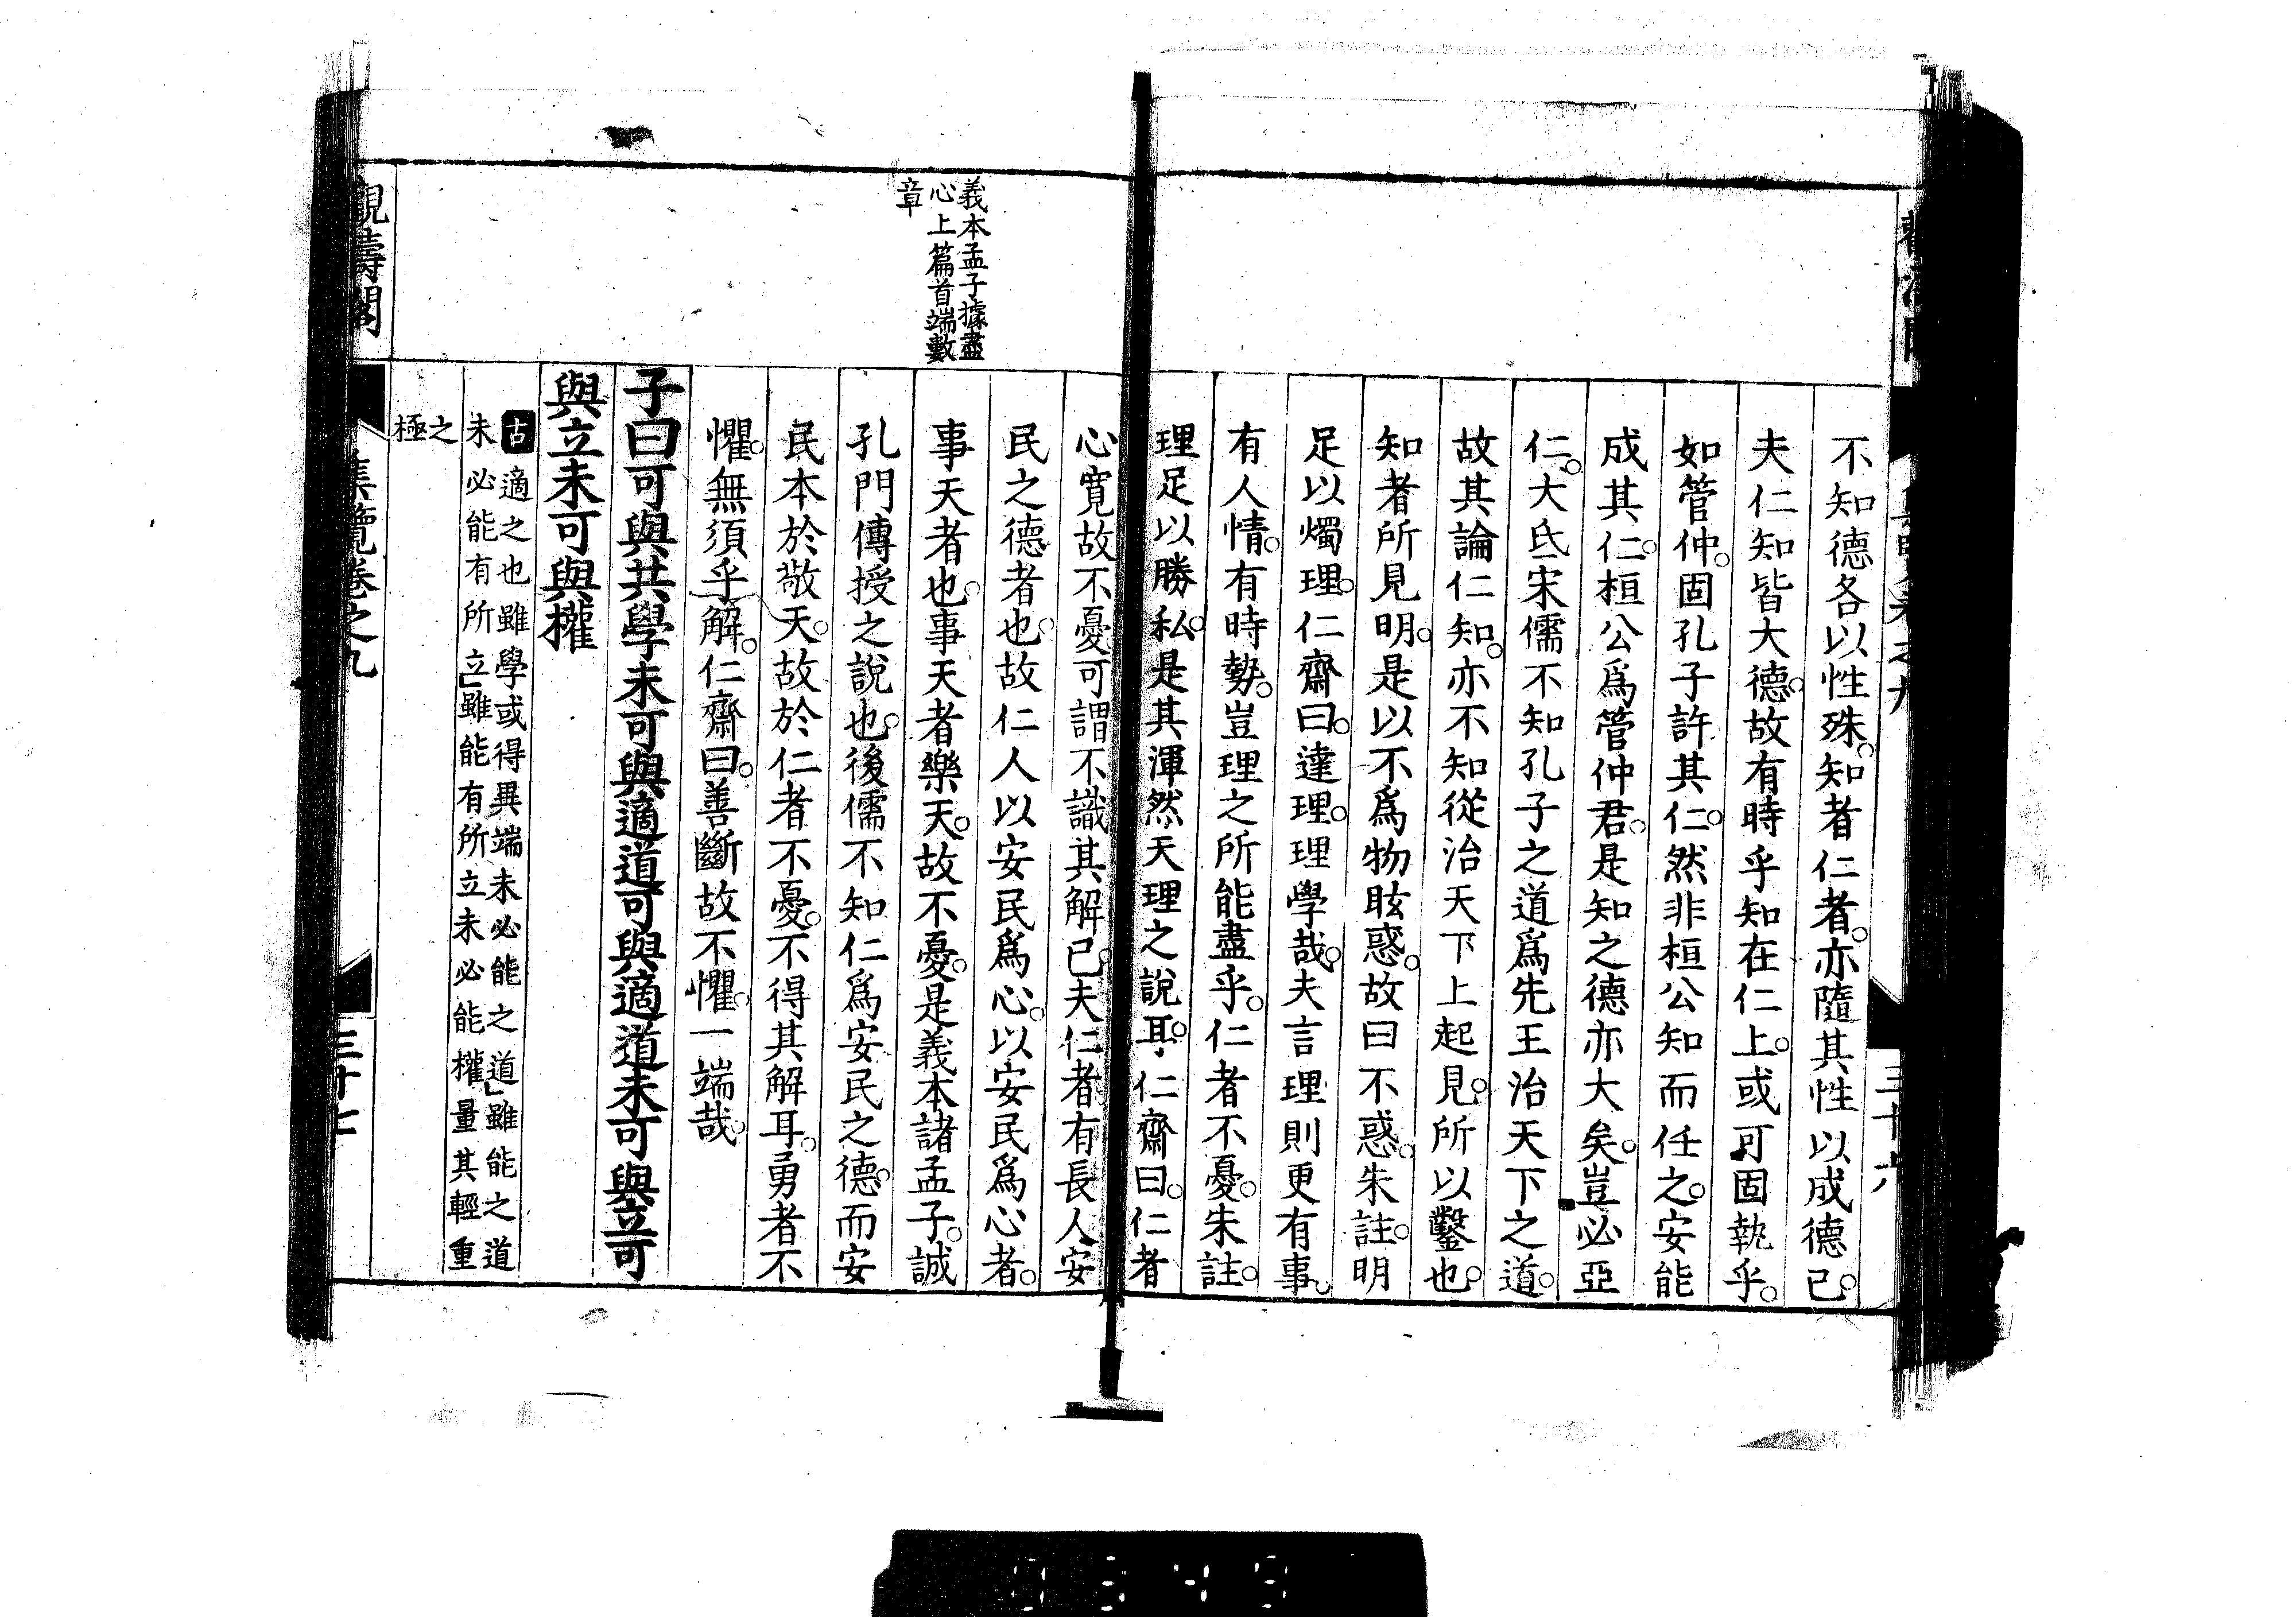 不知德各以性殊。知者仁者。亦隨其性以成德已。
夫仁知皆大德。故有時乎知在仁上。或可固執乎。
如管仲。固孔子許其仁。然非桓公知而任之。安能
成其仁。桓公爲管仲君。是知之德亦大矣。豈必亞
仁。大氐宋儒不知孔子之道爲先王治天下之道。
故其論仁知。亦不知從治天下上起見。所以鑿也。
知者所見明。是以不爲物眩惑。故曰不惑。朱註。明
足以燭理。仁齋曰。達理。理學哉。夫言理則更有事。
有人情。有時勢。豈理之所能盡乎。仁者不憂。朱註。
理足以勝私。是其渾然天理之說耳。仁齋曰。仁者
心寬故不憂。可謂不識其解已。夫仁者有長人安
民之德者也。故仁人以安民爲心。以安民爲心者。
事天者也。事天者樂天。故不憂。是義本諸孟子。誠
孔門傳授之說也。後儒不知仁爲安民之德。而安
民本於敬天。故於仁者不憂。不得其解耳。勇者不
懼。無須乎解。仁齋曰。善斷故不懼。一端哉。
子曰可與共學未可與適道可與適道未可與立可
與立未可與權
古 適之也雖學或得異端未必能之道」雖能之道
未必能有所立」雖能有所立未必能權量其輕重
之
極
義本孟子據盡
心上篇首端數
章
觀濤閣
集覽卷之九
三十七